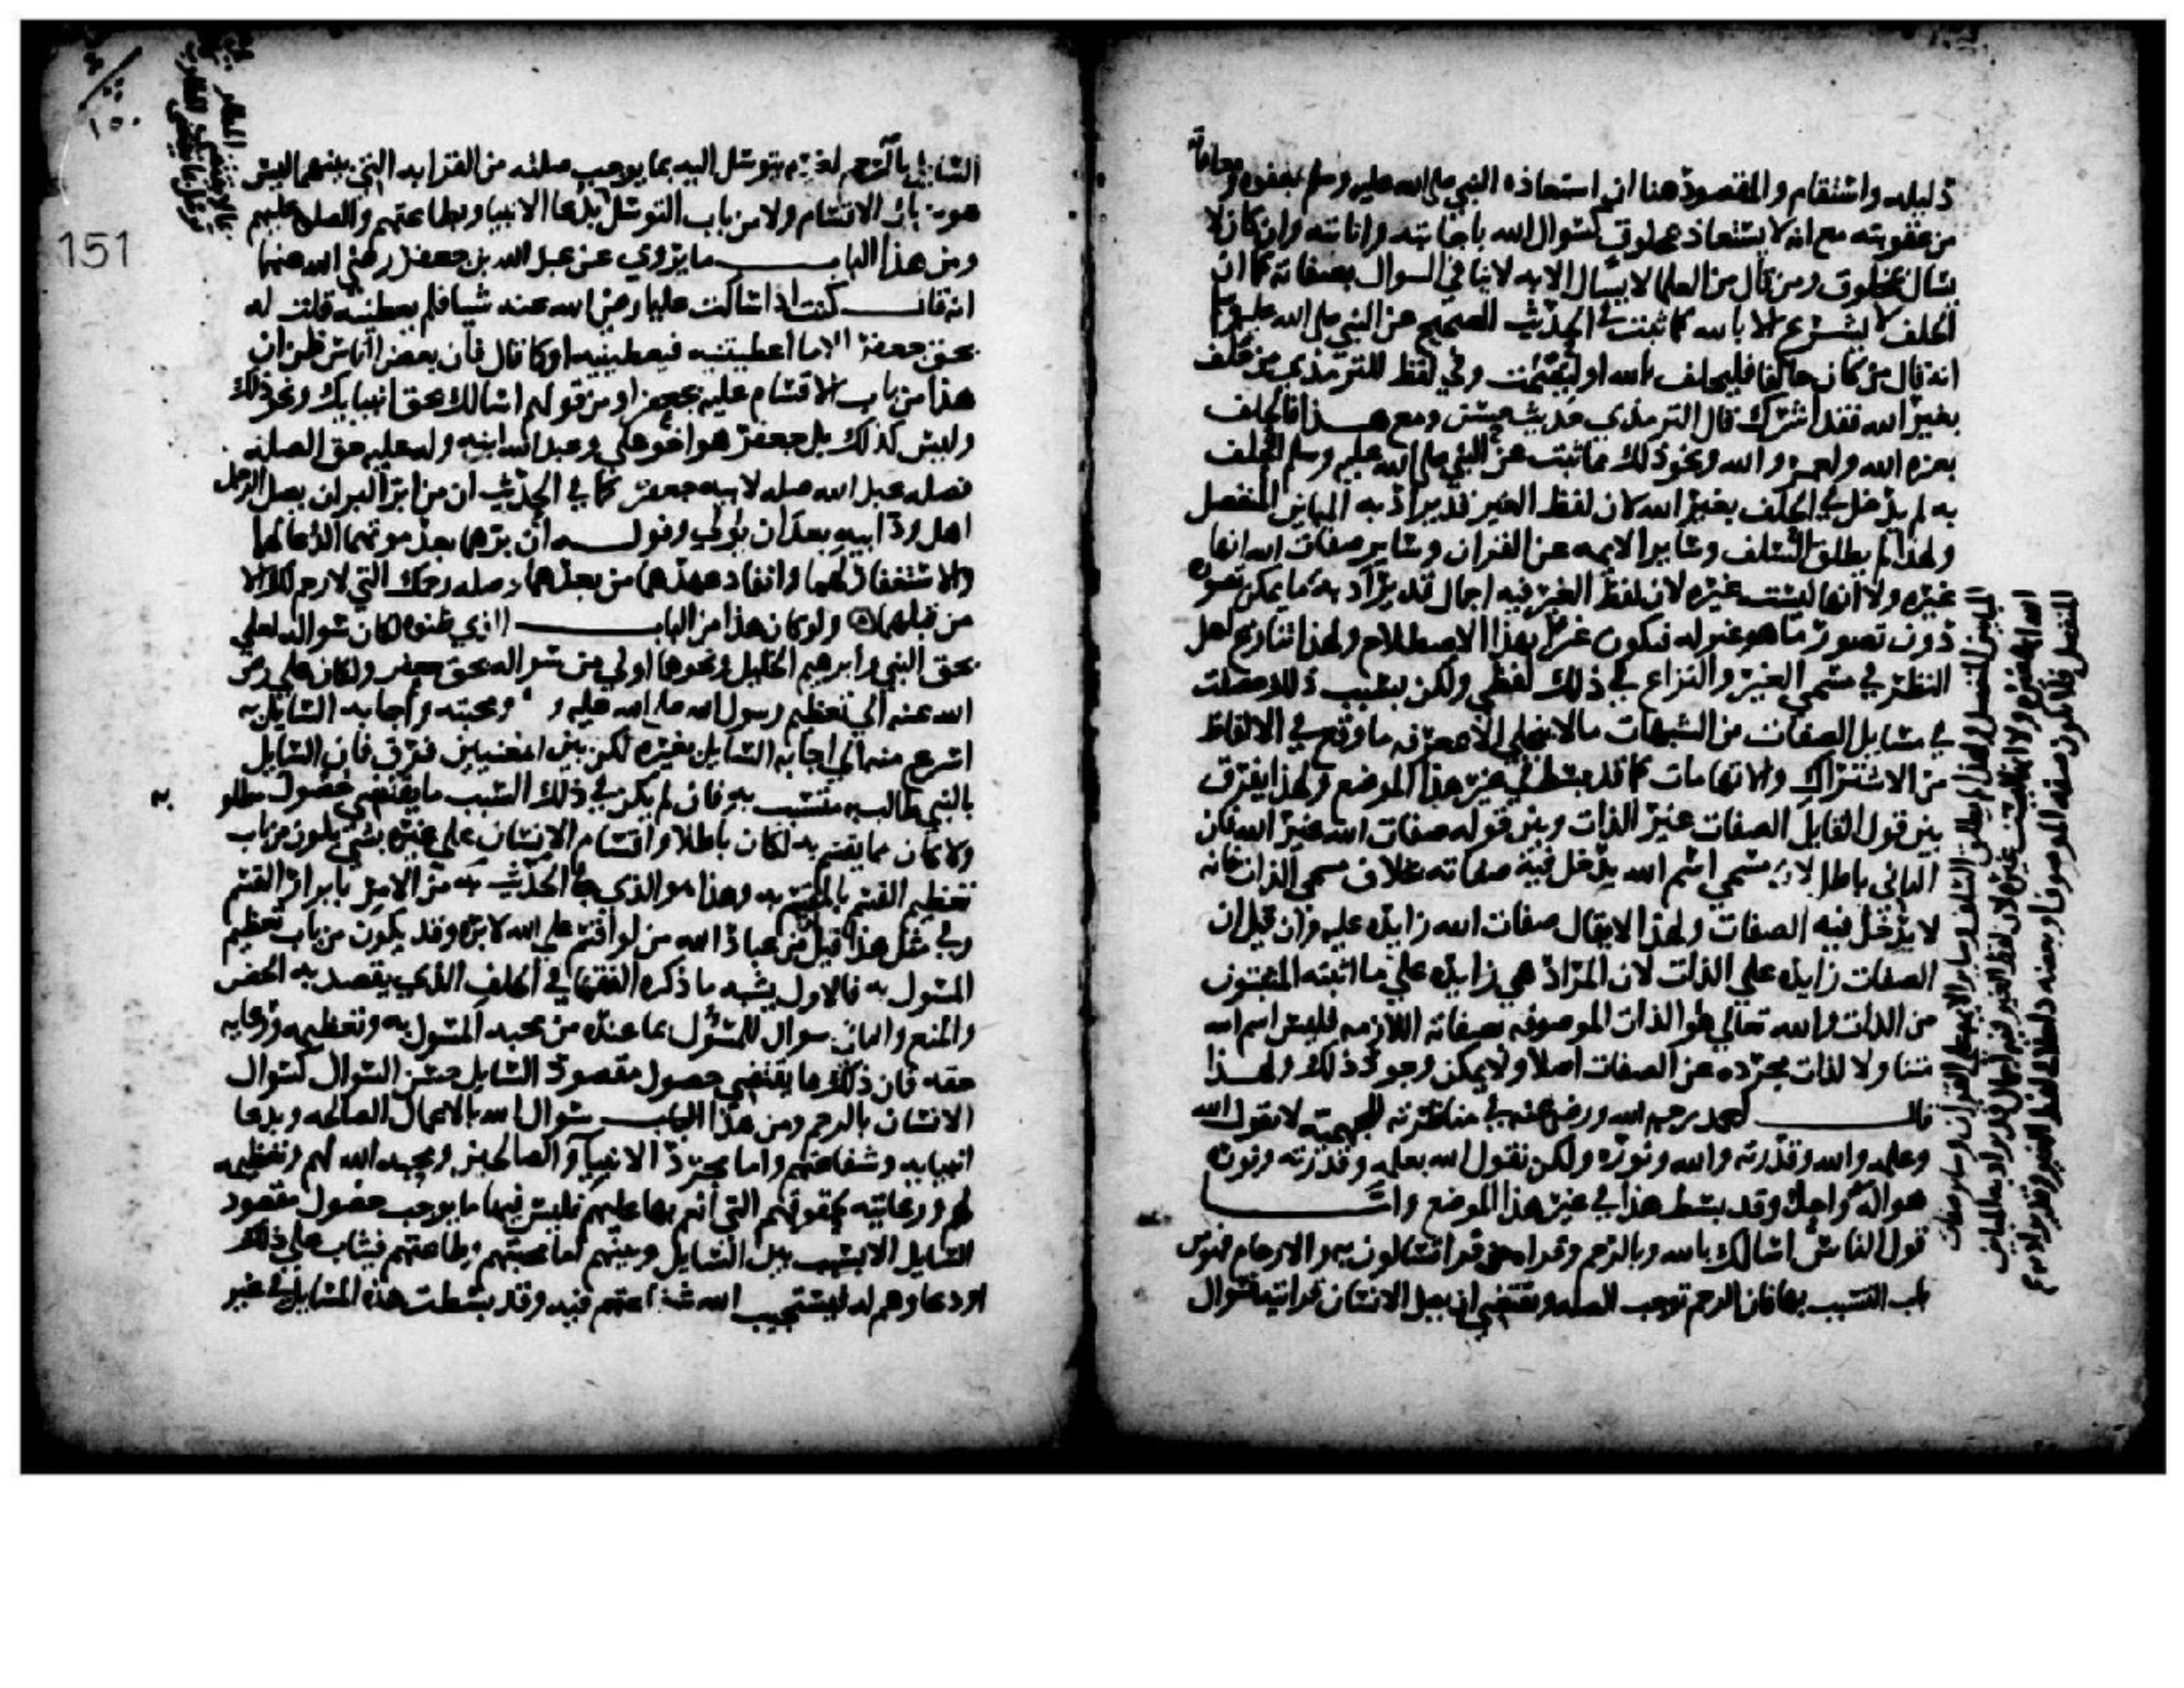 ذليله واستقام والمقصود هنا ان استعاذه النبي صلى الله عليه وسلم بعفوه ومعافاته
من عقوبته مع انه لا يستعاذ بمخلوق كسوال الله باجابته واثابته وان كان لا
يسال بمخلوق ومن قال من العلما لا يسال الا به لا ينافي السوال بصفاته كما ان
الحلف لا يشرع الا بالله كما ثبت في الحديث الصحيح عن النبي صلى الله عليه وسلم
انه قال من كان حالفا فليحلف بالله او ليصمت وفي لفظ للترمذي من حلف
بغير الله فقد اشرك قال الترمذي حديث حسن ومع هذا فالحلف
بعزه الله ولعمر والله ونحو ذلك مما ثبت عن النبي صلى الله عليه وسلم الحلف
به لم يدخل في الحلف بغير الله لان لفظ الغير قد يراد به المباين المنفصل
ولهذا لم يطلق السلف وساير الايمه عن القران وساير صفات الله انها
غيره ولا انها ليست غيره لان لفظ الغير فيه اجمال قد يراد به ما يمكن تصوره
دون تصور ما هو غير له فيكون غيرا بهذا الاصطلاح ولهذا تنازع اهل
النظر في مسمى الغير والنزاع في ذلك لفظي ولكن بسبب ذلك حصلت
في مسايل الصفات من الشبهات مالا ينجلي الا بمعرفه ما وقع في الالفاظ
من الاشتراك والابهامات كما قد بسط في غير هذا الموضع ولهذا يفرق
بين قول القايل الصفات غير الذات وبين قوله صفات الله غير الله فان
الثاني باطل لان مسمى اسم الله يدخل فيه صفاته بخلاف مسمى الذات فانه
لا يدخل فيه الصفات ولهذا لا يقال صفات الله زايده عليه وان قيل ان
الصفات زايده على الذات لان المراد هي زايده على ما اثبته المثبتون
من الذات والله تعالى هو الذات الموصوفه بصفاته اللازمه فليس اسم الله
متناولا لذات مجرده عن الصفات اصلا ولا يمكن وجود ذلك ولهذا
قال احمد رحمه الله ورضي عنه في مناظرته للجهميه لا نقول الله
وعلمه والله وقدرته والله ونوره ولكن نقول الله بعلمه وقدرته ونوره
هو اله واحد وقد بسط هذا في غير هذا الموضع واما
قول الناس اسالك بالله وبالرحم وقراه من قرا تسالون به والارحام فهو من
باب التسبب بها فان الرحم توجب الصله وتقتضي ان يصل الانسان قرابته فسوال
المباين المنفصل ولهذا لم يطلق السلف وساير الايمه على القران وساير صفات
الله انها غيره ولا انها ليست غيره لان لفظ الغير فيه اجمال قد يراد به المباين
المنفصل فلا تكون صفه الموصوف او بعضه داخلا في لفظ الغير وقد يراد به
السايل بالرحم لغيره يتوسل اليه بما يوجب صلته من القرابه التي بينهما ليس
هو من باب الاقسام ولا من باب التوسل بدعا الانبيا وبطاعتهم والصله عليهم
ومن هذا الباب ما يروى عن عبد الله بن جعفر رضي الله عنهما
انه قال كنت اذا سالت عليا رضي الله عنه شيا فلم يعطنيه قلت له
بحق جعفر الا ما اعطيتنيه فيعطينيه او كما قال فان بعض الناس ظن ان
هذا من باب الاقسام عليه بجعفر او من قولهم اسالك بحق انبيايك ونحو ذلك
وليس كذلك بل جعفر هو اخو علي وعبد الله ابنه وله عليه حق الصله
فصله عبد الله صله لابيه جعفر كما في الحديث ان من ابر البر ان يصل الرجل
اهل ود ابيه بعد ان يولي وقوله ان برهما بعد موتهما الدعا لهما
والاستغفار لهما وانفاد عهدهما من بعدهما وصله رحمك التي لا رحم لك الا
من قبلهما ولو كان هذا من الباب الذي ظنوه لكان سواله لعلي
بحق النبي وابرهيم الخليل ونحوهما اولى من سواله بحق جعفر ولكان علي رضي
الله عنه الى تعظيم رسول الله صلى الله عليه و ومحبته واجابه السايل به
اسرع منه الى اجابه السايل بغيره لكن بين المعنيين فرق فان السايل
بالنبي طالب به متسبب به فان لم يكن في ذلك السبب ما يقتضي حصول مطلو به
ولا كان مما يقسم به لكان باطلا واقسام الانسان على غيره بشي يكون من باب
تعظيم القسم بالمقسم به وهذا هو الذي جا الحديث به من الامر بابرار القسم
وفي مثل هذا قيل من عباد الله من لو اقسم على الله لابره وقد يكون من باب تعظيم
المسول به فالاول يشبه ما ذكره الفقها في الحلف الذي يقصد به الحض
والمنع والثاني سوال للمسؤل بما عنده من محبه المسول به وتعظيمه ورعايه
حقه فان ذلك مما يقتضي حصول مقصود السايل حسن السوال كسوال
الانسان بالرحم ومن هذا الباب سوال الله بالاعمال الصالحه وبدعا
انبيايه وشفاعتهم واما مجرد الانبيا والصالحين ومحبه الله لهم وتعظيمه
لهم ورعايته لحقوقهم التي انعم بها عليهم فليس فيها ما يوجب حصول مقصود
السايل الا بسبب بين السايل وبينهم اما محبتهم وطاعتهم فيثاب على ذلك
او دعاوهم له ليستجيب الله شفاعتهم فيه وقد بسطت هذه المسايل في غير
151
١٥٠